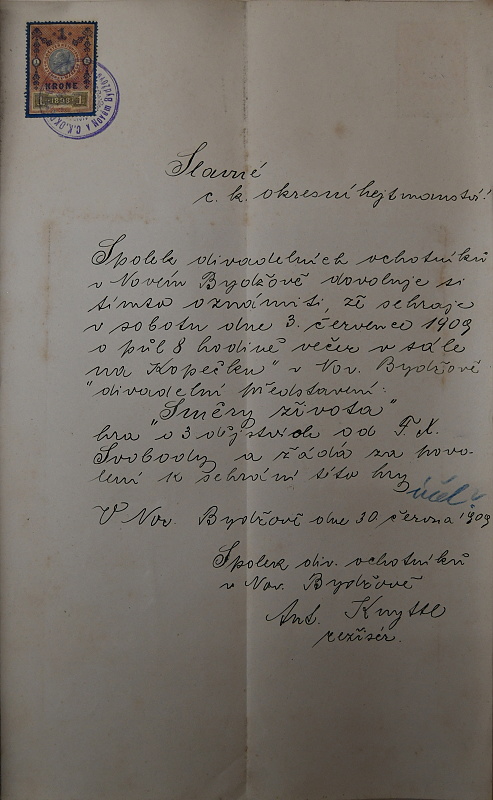 1
KRONE
1 1898 1
Slavné
c. k. okresní hejtmanství!
Spolek divadelních ochotníků
v Novém Bydžově dovoluje si
tímto oznámiti, že sehraje
v sobotu dne 3. července 1909
o půl 8 hodině večer v sále
"na Kopečku" v Nov. Bydžově
divadelní představení:
"Směry života"
hra o 3 dějstvích od F. X.
Svobody a žádá za povo-
lení k sehrání této hry
účel?
V Nov. Bydžově dne 30. června 1909
Spolek div. ochotníků
v Nov. Bydžově
Ant. Knyttl
režisér.